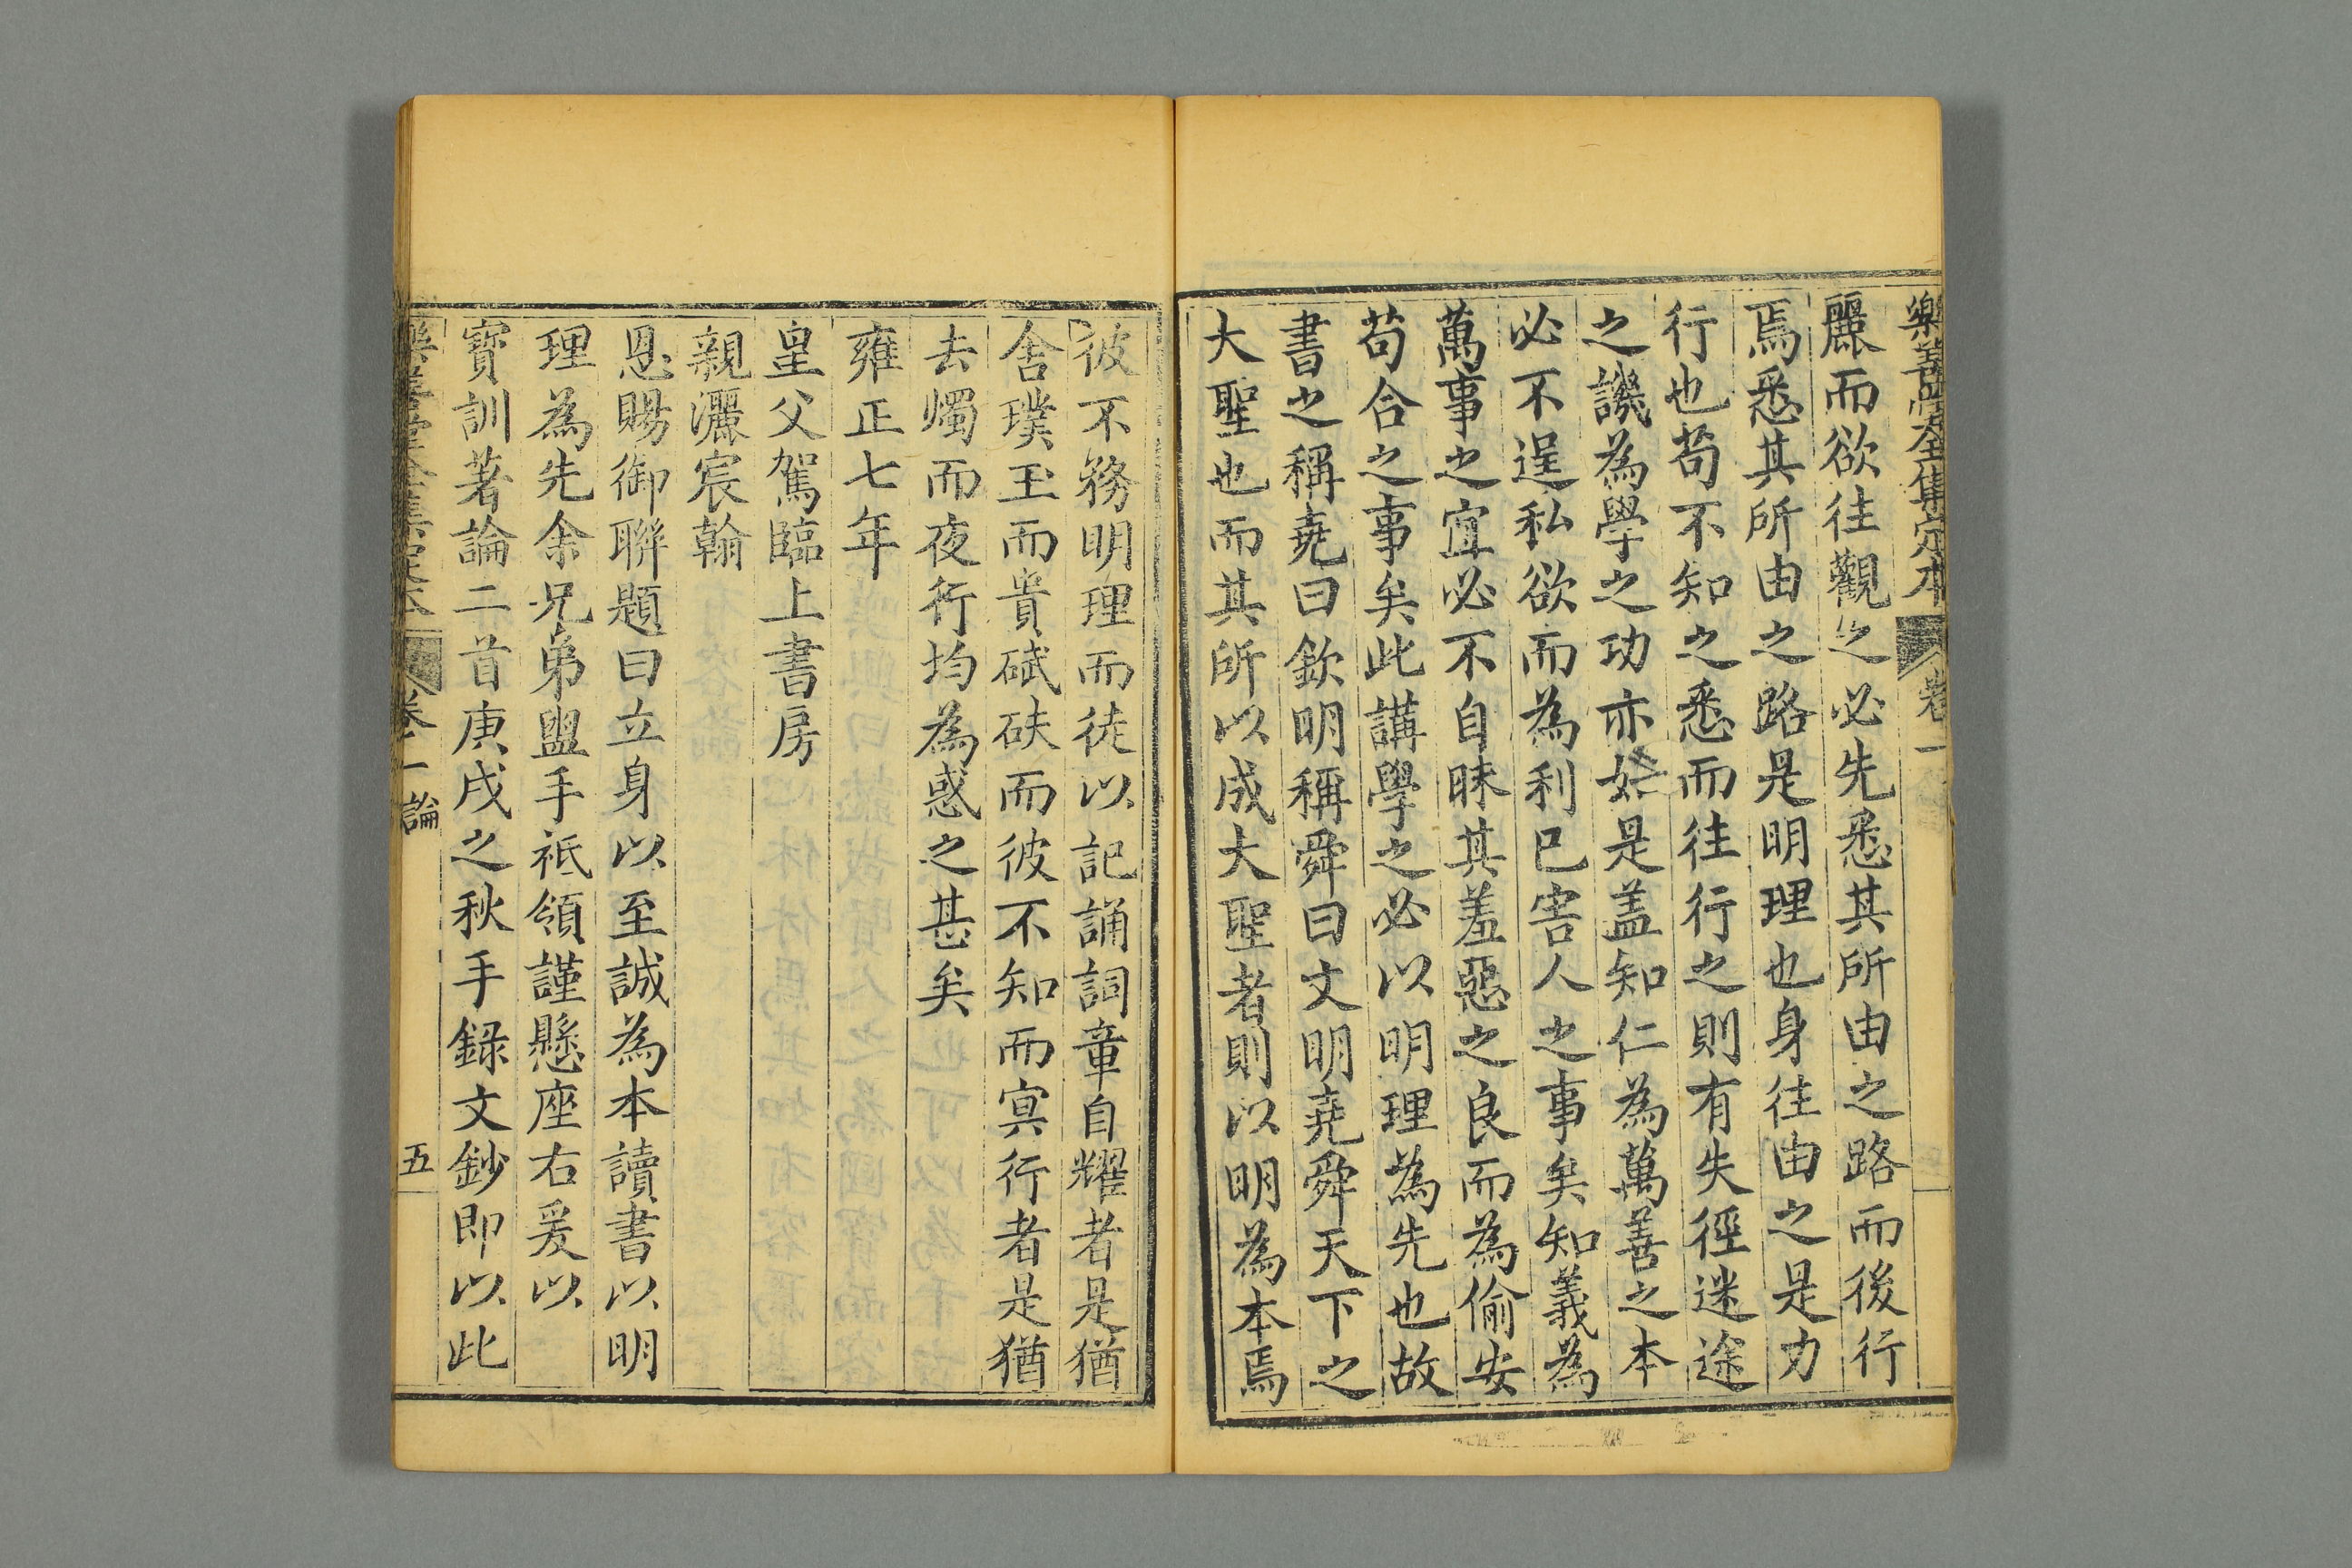 樂善堂全集定本 卷一
麗而欲往觀之必先悉其所由之路而後行
焉悉其所由之路是明理也身往由之是力
行也苟不知之悉而往行之則有失徑迷途
之譏為學之功亦如是盖知仁為萬善之本
必不逞私欲而為利已害人之事矣知義為
萬事之宜必不自昧其羞惡之良而為偷安
苟合之事矣此講學之必以明理為先也故
書之稱堯曰欽明稱舜曰文明堯舜天下之
大聖也而其所以成大聖者則以明為本焉
彼不務明理而徒以記誦詞章自耀者是猶
舍璞玉而貴碔砆而彼不知而冥行者是猶
去燭而夜行均為惑之甚矣
雍正七年
皇父駕臨上書房
親灑宸翰
恩賜御聯題曰立身以至誠為本讀書以明
理為先余兄弟盥手祗領謹懸座右爰以
寶訓著論二首庚戌之秋手錄文鈔即以此
樂善堂全集定本 卷一 論 五